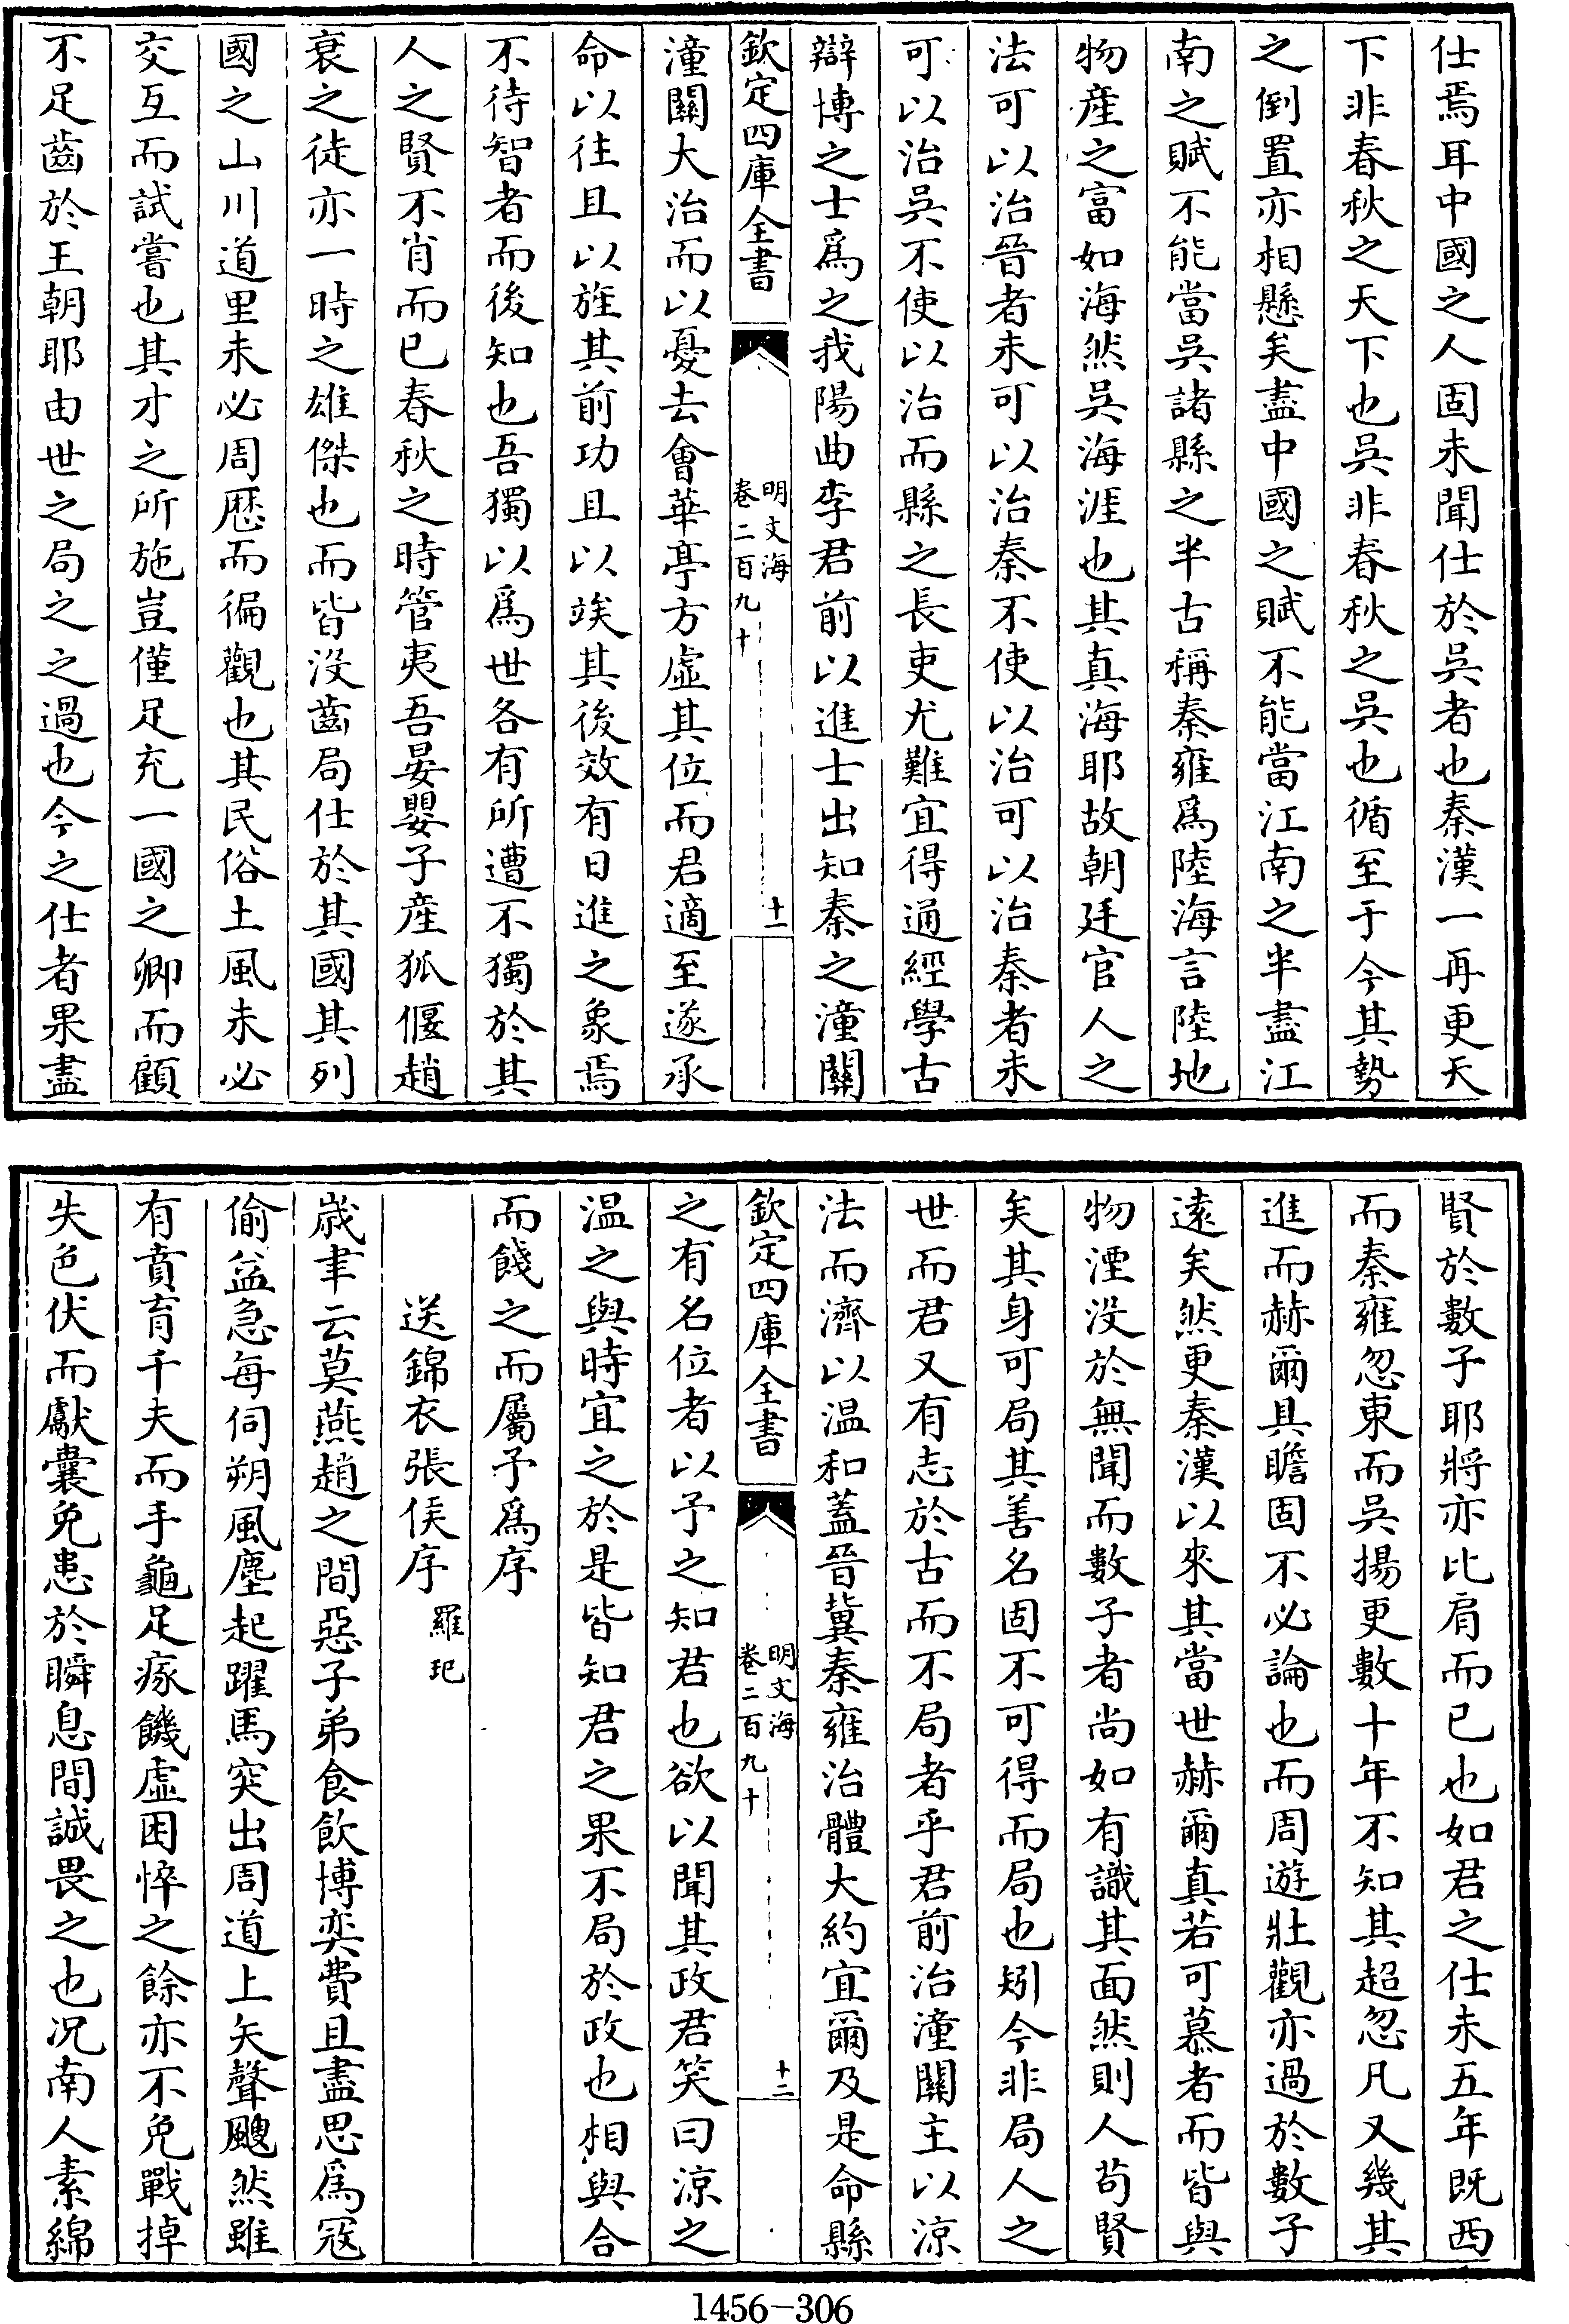 仕焉耳中國之人固未聞仕於吳者也秦漢一再更天
下非春秋之天下也吳非春秋之吳也循至于今其勢
之倒置亦相懸矣盡中國之賦不能當江南之半盡江
南之賦不能當吳諸縣之半古稱秦雍爲陸海言陸地
物產之富如海然吳海涯也其真海耶故朝廷官人之
法可以治晉者未可以治秦不使以治可以治秦者未
可以治吳不使以治而縣之長吏尤難宜得通經學古
辯博之士爲之我陽曲李君前以進士出知秦之潼關
欽定四庫全書
明文海
卷二百九十
十一
潼關大治而以憂去會華亭方虛其位而君適至遂承
命以往且以旌其前功且以竢其後效有日進之象焉
不待智者而後知也吾獨以爲世各有所遭不獨於其
人之賢不肖而已春秋之時管夷吾晏嬰子產狐偃趙
衰之徒亦一時之雄傑也而皆沒齒局仕於其國其列
國之山川道里未必周歷而徧觀也其民俗土風未必
交互而試嘗也其才之所施豈僅足充一國之卿而顧
不足齒於王朝耶由世之局之之過也今之仕者果盡
賢於數子耶將亦比肩而已也如君之仕未五年既西
而秦雍忽東而吳揚更數十年不知其超忽凡又幾其
進而赫爾具瞻固不必論也而周遊壯觀亦過於數子
遠矣然更秦漢以來其當世赫爾真若可慕者而皆與
物湮沒於無聞而數子者尚如有識其面然則人苟賢
矣其身可局其善名固不可得而局也矧今非局人之
世而君又有志於古而不局者乎君前治潼關主以涼
法而濟以温和蓋晉冀秦雍治體大約宜爾及是命縣
欽定四庫全書
明文海
卷二百九十
十二
之有名位者以予之知君也欲以聞其政君笑曰涼之
温之與時宜之於是皆知君之果不局於政也相與合
而餞之而屬予爲序
送錦衣張侯序 羅玘
歲聿云莫燕趙之間惡子弟食飲博奕費且盡思爲冦
偷益急每伺朔風塵起躍馬突出周道上矢聲颼然雖
有賁育千夫而手龜足瘃饑虛困悴之餘亦不免戰掉
失色伏而獻囊免患於瞬息間誠畏之也况南人素綿
1456-306